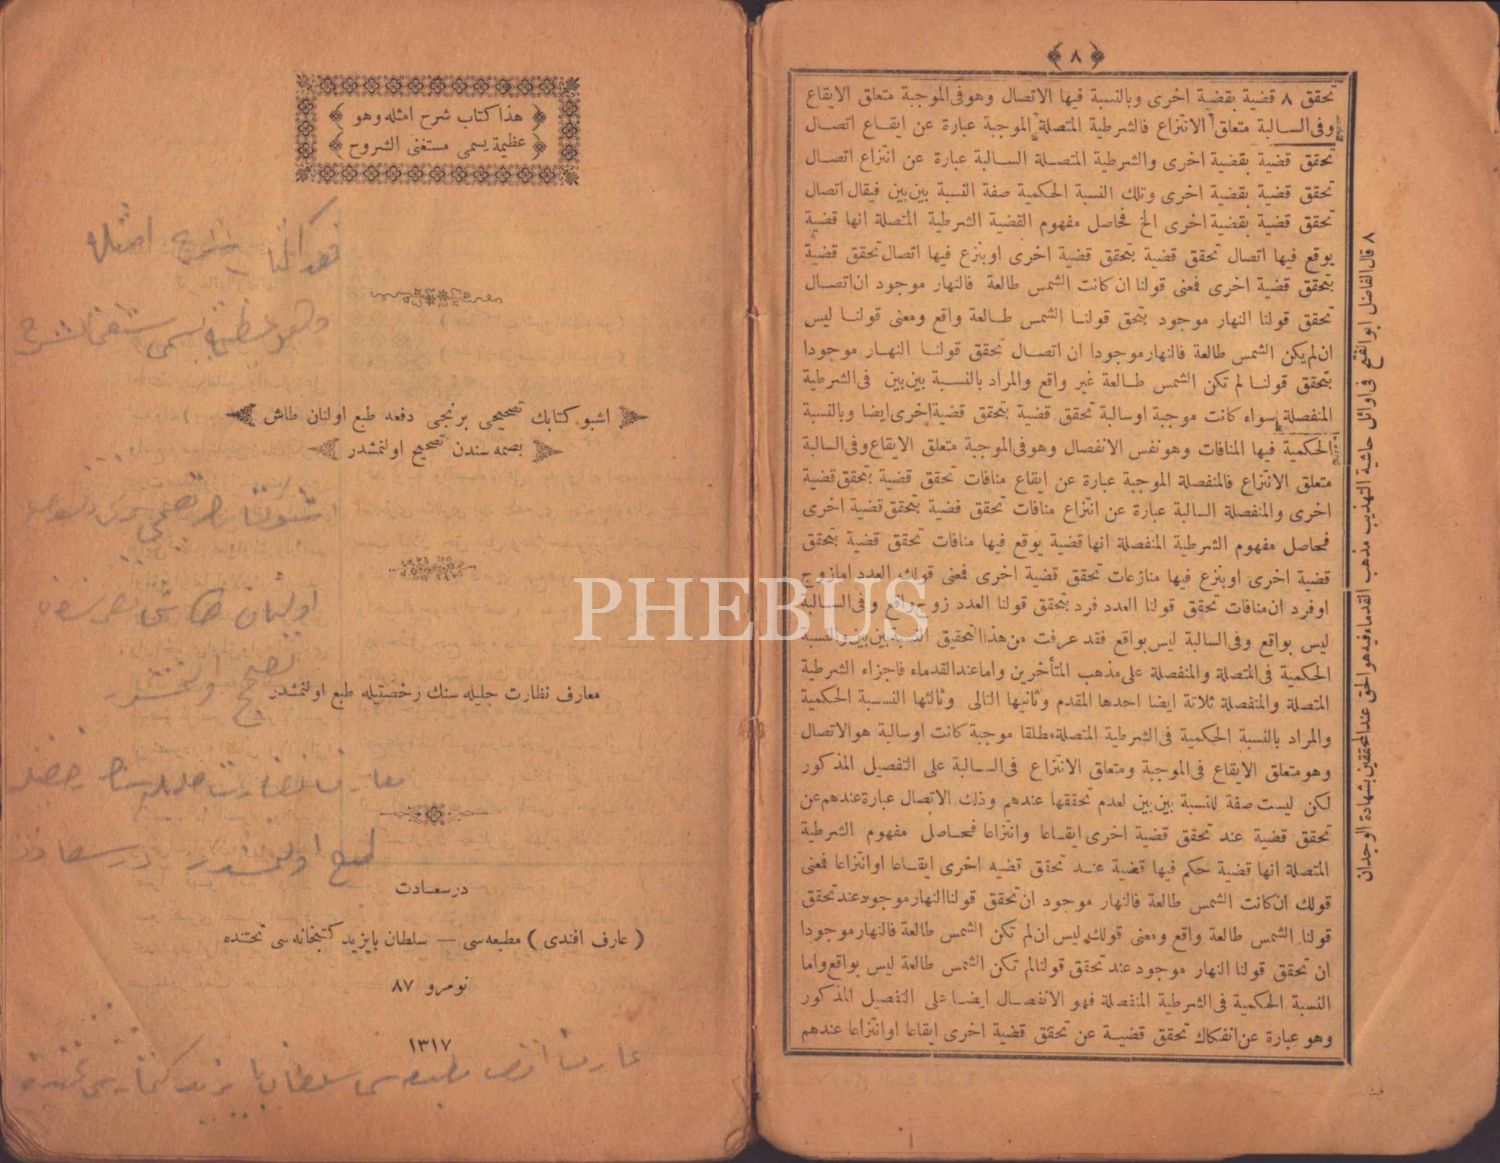 ﴿ ٨ ﴾
تحقق ٨ قضية بقضية اخرى وبالنسبة فيها الاتصال وهو فى الموجبة متعلق الايقاع
وفى السالبة متعلق الانتزاع فالشرطية المتصلة الموجبة عبارة عن ايقاع اتصال
تحقق قضية بقضية اخرى والشرطية المتصلة السالبة عبارة عن انتزاع اتصال
تحقق قضية بقضية اخرى وتلك النسبة الحكمية صفة النسبة بين بين فيقال اتصال
تحقق قضية بقضية اخرى الخ فحاصل مفهوم القضية الشرطية المتصلة انها قضية
يوقع فيها اتصال تحقق قضية بتحقق قضية اخرى او ينزع فيها اتصال تحقق قضية
بتحقق قضية اخرى فمعنى قولنا ان كانت الشمس طالعة فالنهار موجود ان اتصال
تحقق قولنا النهار موجود بتحق قولنا الشمس طالعة واقع ومعنى قولنا ليس
ان لم يكن الشمس طالعة فالنهار موجودا ان اتصال تحقق قولنا النهار موجودا
بتحقق قولنا لم تكن الشمس طالعة غير واقع والمراد بالنسبة بين بين فى الشرطية
المنفصلة سواء كانت موجبة او سالبة تحقق قضية بتحقق قضية اخرى ايضا وبالنسبة
الحكمية فيها المنافات وهو نفس الانفصال وهو فى الموجبة متعلق الايقاع وفى السالبة
متعلق الانتزاع فالمنفصلة الموجبة عبارة عن ايقاع منافات تحقق قضية بتحقق قضية
اخرى والمنفصلة السالبة عبارة عن انتزاع منافات تحقق قضية بتحقق قضية اخرى
فحاصل مفهوم الشرطية المنفصلة انها قضية يوقع فيها منافات تحقق قضية بتحقق
قضية اخرى او ينزع فيها منازعات تحقق قضية اخرى فمعنى قولك العدد اما زوج
او فرد ان منافات تحقق قولنا العدد فرد بتحقق قولنا العدد زوج واقع وفى السالبة
ليس بواقع وفى السالبة ليس بواقع فقد عرفت من هذا التحقيق النسبة بين بين والنسبة
الحكمية فى المتصلة والمنفصلة على مذهب المتأخرين واما عند القدماء فاجزاء الشرطية
المتصلة والمنفصلة ثلاثة ايضا احدها المقدم وثانيها التالى وثالثها النسبة الحكمية
والمراد بالنسبة الحكمية فى الشرطية المتصلة مطلقا موجبة كانت او سالبة هو الاتصال
وهو متعلق الايقاع فى الموجبة ومتعلق الانتزاع فى السالبة على التفصيل المذكور
لكن ليست صفة للنسبة بين بين لعدم تحققها عندهم وذلك الاتصال عبارة عندهم عن
تحقق قضية عند تحقق قضية اخرى ايقاعا وانتزاعا فحاصل مفهوم الشرطية
المتصلة انها قضية حكم فيها قضية عند تحقق قضيه اخرى ايقاعا او انتزاعا فمعنى
قولك ان كانت الشمس طالعة فالنهار موجود ان تحقق قولنا النهار موجود عند تحقق
قولنا الشمس طالعة واقع ومعنى قولك ليس ان لم تكن الشمس طالعة فالنهار موجودا
ان تحقق قولنا النهار موجود عند تحقق قولنا لم تكن الشمس طالعة ليس بواقع واما
النسبة الحكمية فى الشرطية المنفصلة فهو الانفصال ايضا على التفصيل المذكور
وهو عبارة عن انفكاك تحقق قضية عن تحقق قضية اخرى ايقاعا او انتزاعا عندهم
٨ قال الفاضل ابو الفتح فى اوائل حاشية التهذيب مذهب القدماء فيه هو الحق عند المحققين بشهادة الوجدان
﴿ هذا كتاب شرح امثله وهو ﴾
﴿ عظيمة يسمى مستغنى الشروح ﴾
اشبو كتابك تصحيحى برنجى دفعه طبع اولنان طاش
بصمه سندن تصحيح اولنمشدر
معارف نظارت جليله سنك رخصتيله طبع اولنمشدر
درسعادت
( عارف افندى ) مطبعه سى — سلطان بايزيد كتبخانه سى تحتنده
نومرو ٨٧
١٣١٧
PHEBUS